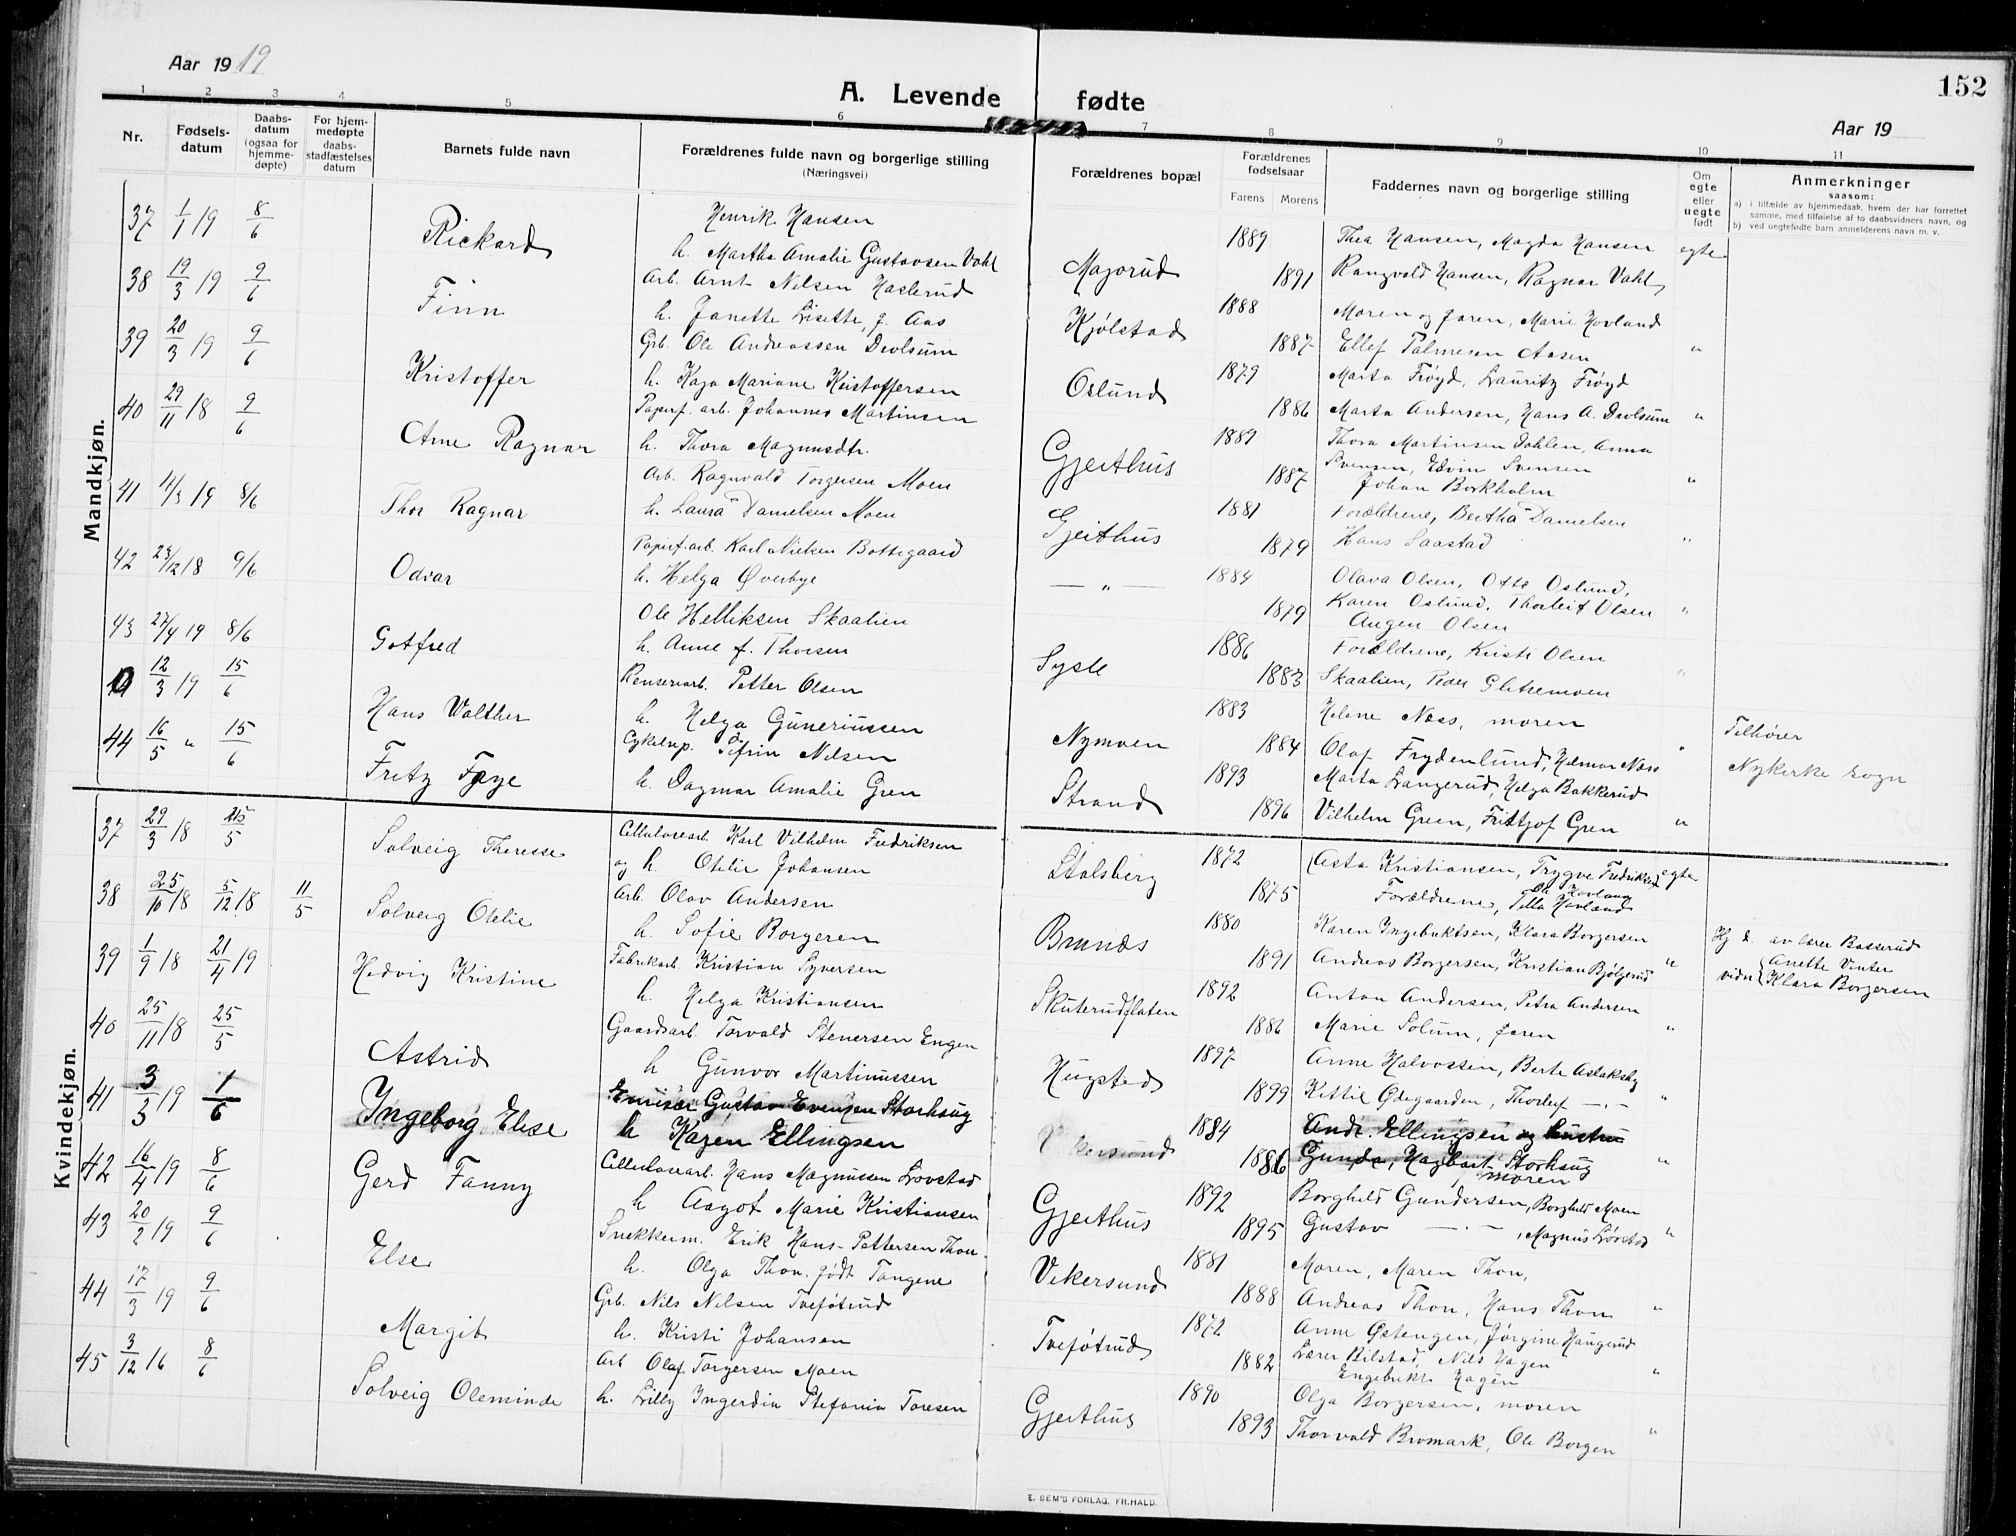 Aar 1919
A. Levende fødte
152
Aar 19
1 2 3 4 5 6 7 8 9 10 11
Nr.
Fødsels-datum
Daabs-datum (ogsaa for hjemme-døpte)
For hjem-medøpte daabs-stadfæstelses datum
Barnets fulde navn
Forældrenes fulde navn og borgerlige stilling
(Næringsvei)
Forældrenes bopæl
Forældrenes fødselsaar
Farens Morens
Faddernes navn og borgerlige stilling
Om egte eller uegte født
Anmerkninger
saasom:
a) i tilfælde av hjemmedaab, hvem der har forrettet samme, med tilføielse af to daabsvidners navn, og
b) ved uegtefødte barn anmelderens navn m. v.
Mandkjøn.
37 1/1 19 8/6 Rickard
Henrik Hansen
h. Martha Amalie Gustavsen Vahl
Majorud 1889 1891
Thea Hansen, Magda Hansen egte
Rangvald Hansen, Ragnar Vahl
38 19/3 19 9/6 Finn
Arb. Arnt Nilsen Haslerud
h. Janette Lisette, f. Aas
Kjølstad 1888 1887
Moren og faren, Marie Hovland
Ellef Palmesen Aasen "
39 20/3 19 9/6 Kristoffer
Grb. Ole Andreassen Devlsum
h. Kaja Mariane Kristoffersen
Oslund 1879 1886
Marta Frøyd, Lauritz Frøyd
Marta Andersen, Hans A. Devlsum "
40 29/11 18 9/6 Arne Ragnar
Papirf. arb. Johannes Martinsen
h. Thora Magnusdtr.
Gjeithus 1889 1887
Thora Martinsen Dahlen, Anna
Svensen, Edvin Svensen
Johan Borkholm "
41 11/3 19 8/6 Thor Ragnar
Arb. Ragnvald Torgersen Moen
h. Laura Danielsen Moen
Gjeithus 1881 1879
Forældrene, Bertha Danielsen
Hans Saastad "
42 23/12 18 9/6 Odvar
Papirf. arb. Karl Nielsen Bottegaard
h. Helga Øverbye
— " — 1884 1879
Olava Olsen, Otto Oslund,
Karen Oslund, Thorleif Olsen "
Augen Olsen
43 27/4 19 8/6 Gotfred
Ole Helliksen Skaalien
h. Anne f. Thoesen
Sysle 1886 1883
Forældrene, Kristi Olsen
Skaalien, Peder Gletremoen "
0 12/3 19 15/6 Hans Walther
Renseriarb. Petter Olsen
h. Helga Guneriussen
Nymoen 1883 1884
Helene Næss, moren
Olaf Frydenlund, Helmar Næss "
Tilhører
Nykirke sogn
44 16/5 " 15/6 Fritz Faye
Cykelrep. Nilsen
h. Dagmar Amalie Gren
Strand 1893 1896
Marta Langerud, Helga Bakkerud
Vilhelm Green, Fritjof Gren "
Kvindekjøn.
37 29/3 18 25/5 Solveig Therese
Cellulosearb. Karl Vilhelm Fredriksen
og h. Otilie Johansen
Stalsberg 1872 1875
Asta Kristiansen, Trygve Fredriksen egte
Forældrene, Tilla Hovland
38 25/10 18 5/12 18 11/5 Solveig Otelie
Arb. Olav Andersen
h. Sofie Borgeren
Brunes 1880 1891
Karen Ingebuktsen, Klara Borgersen
Andreas Borgersen, Kristian Bjølgerud "
Hj d. av lærer Basserud
vidn { Anette Vinter
Klara Borgersen
39 1/9 18 21/4 19 Hedvig Kristine
Fabrikarb. Kristian Syversen
h. Helga Kristiansen
Skuterudflaten 1892 1886
Anton Andersen, Petra Andersen
Marie Solum, faren "
40 25/11 18 25/5 Astrid
Gaardsarb. Torvald Stenersen Engen
h Gunvor Martinussen
Hugsted 1897 1899
Anne Halvorsen, Berte Aslaksby
Kittil Ødegaarden, Thorleif —"— "
41 3/3 19 1/6 Ingeborg Else
Gustav Evensen Storhaug
h Karen Ellingsen
Vikersund 1884 1886
Andr. Ellingsen og hustru
Gunda, Hagbart Storhaug
moren "
42 16/4 19 8/6 Gerd Fanny
Cellulosearb. Hans Magnussen Lovstad
h Aagot Marie Kristiansen
Gjeithus 1892 1895
Borghild Gundersen, Borghild Moen
Gustav —"—, Magnus Løvstad "
43 20/2 19 9/6 Else
Snekkerm. Erik Hans-Pettersen Thon
h. Olga Thon. født Tangene
Vikersund 1881 1888
Moren, Maren Thon,
Andreas Thon, Hans Thon "
44 17/3 19 9/6 Margit
Grb. Nils Nilsen Tveføtrud
h. Kristi Johansen
Tveføtrud 1872 1882
Anne Østengen, Jørgine Haugerud
Lærer Bilstad, Nils Hagen
Engebrikt Hagen "
45 3/12 16 8/6 Solveig Oleminde
Arb Olaf Torgersen Moen
h. Lilly Ingerdia Stefania Toresen
Gjeithus 1890 1893
Olga Borgersen, moren
Thorvald Bromark, Ole Borgen "
E. SEM'S FORLAG, FR.HALD.